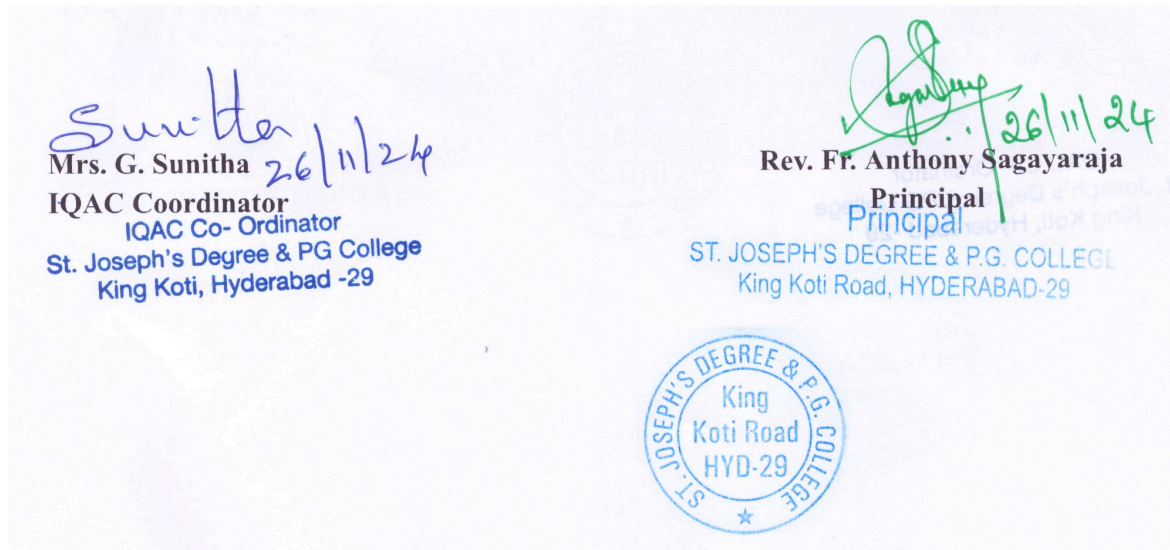 Sunitha
26/11/24
Mrs. G. Sunitha
IQAC Coordinator
IQAC Co- Ordinator
St. Joseph's Degree & PG College
King Koti, Hyderabad -29
26/11/24
Rev. Fr. Anthony Sagayaraja
Principal
Principal
ST. JOSEPH'S DEGREE & P.G. COLLEGE
King Koti Road, HYDERABAD-29
ST. JOSEPH'S DEGREE & P.G. COLLEGE
King
Koti Road
HYD-29